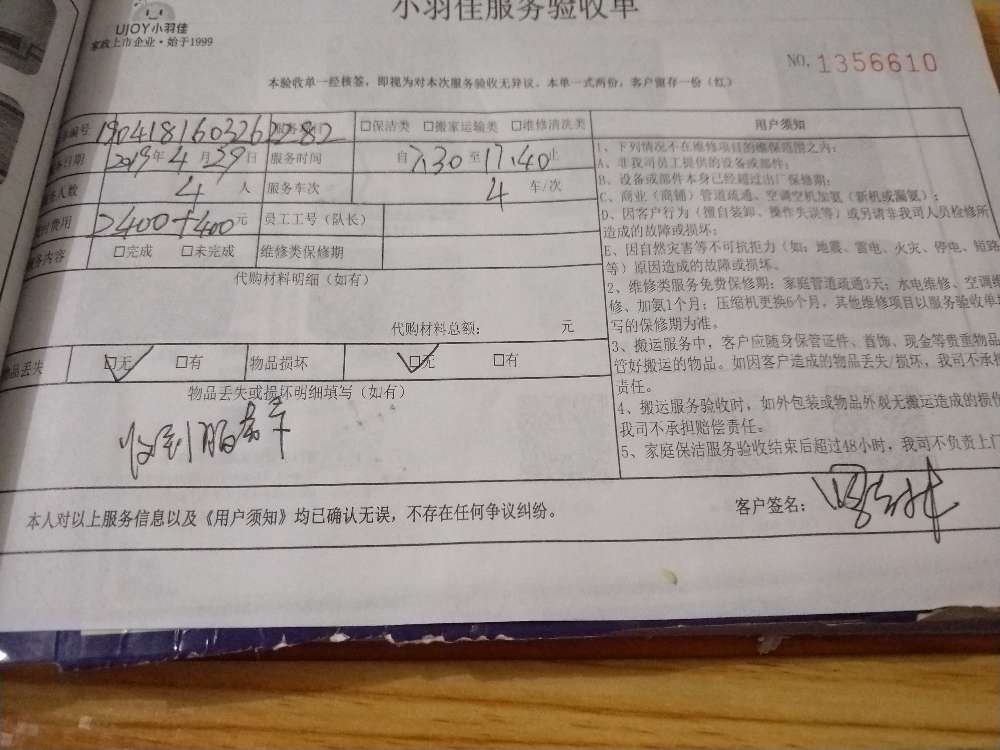 小羽佳服务验收单
UJOY小羽佳
家政上市企业·始于1999
NO. 1356610
本验收单一经核签，即视为对本次服务验收无异议。本单一式两份，客户留存一份（红）
编号 19041816032622282 □保洁类 □搬家运输类 □维修清洗类
日期 2019年4月29日 服务时间 自7.30至17.40止
人数 4人 服务车次 4车/次
费用 2400+400元 员工工号（队长）
务内容 □完成 □未完成 维修类保修期
代购材料明细（如有）
代购材料总额： 元
物品丢失 ☑无 □有 物品损坏 ☑无 □有
物品丢失或损坏明细填写（如有）
收到服务单
本人对以上服务信息以及《用户须知》均已确认无误，不存在任何争议纠纷。
客户签名：
用户须知
1、下列情况不在维修项目的维保范围之内：
A、非我司员工提供的设备或部件；
B、设备或部件本身已经超过出厂保修期；
C、商业（商铺）管道疏通、空调空机加氨（新机或漏氨）；
D、因客户行为（擅自装卸、操作失误等）或另请非我司人员检修所
造成的故障或损坏；
E、因自然灾害等不可抗拒力（如：地震、雷电、火灾、停电、短路
等）原因造成的故障或损坏。
2、维修类服务免费保修期：家庭管道疏通3天；水电维修、空调维
修、加氨1个月；压缩机更换6个月，其他维修项目以服务验收单
写的保修期为准。
3、搬运服务中，客户应随身保管证件、首饰、现金等贵重物品
管好搬运的物品。如因客户造成的物品丢失/损坏，我司不承担
责任。
4、搬运服务验收时，如外包装或物品外观无搬运造成的损伤
我司不承担赔偿责任。
5、家庭保洁服务验收结束后超过48小时，我司不负责上门